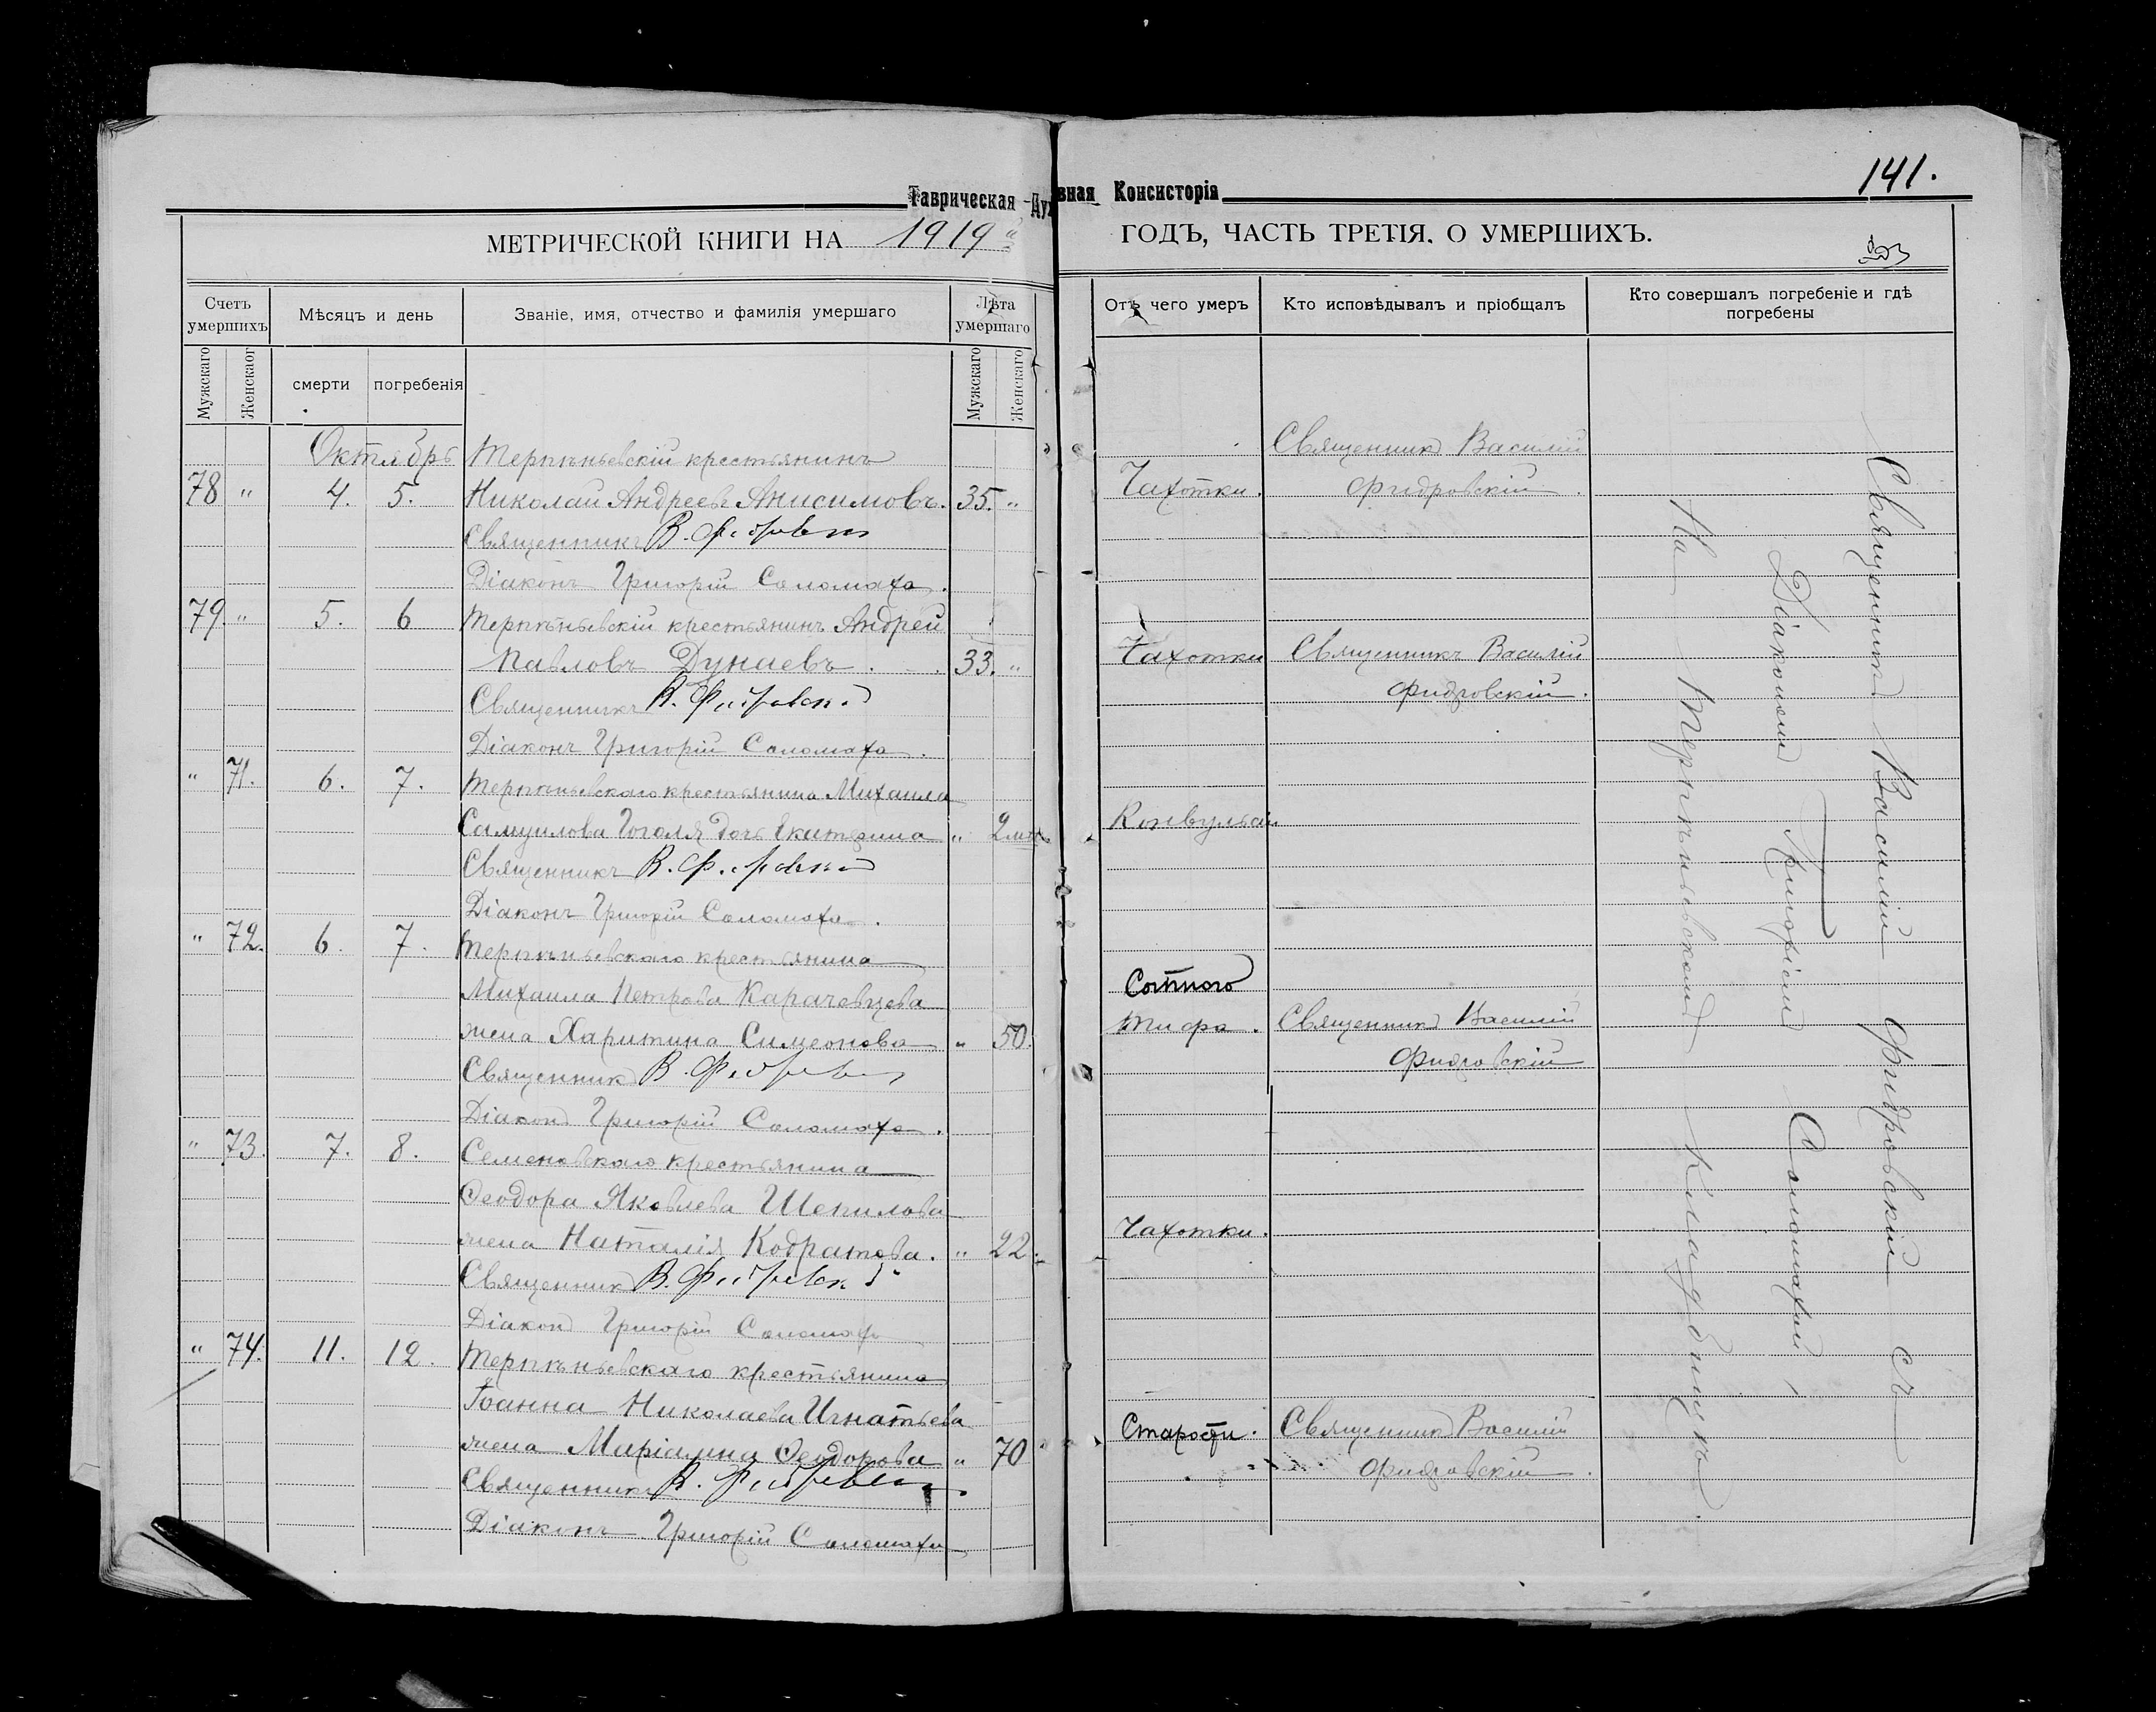 Таврическая Духовная Консисторія
141.
МЕТРИЧЕСКОЙ КНИГИ НА 1919 й
ГОДЪ, ЧАСТЬ ТРЕТІЯ, О УМЕРШИХЪ.
Счетъ умершихъ
Мѣсяцъ и день
Званіе, имя, отчество и фамилія умершаго
Лѣта умершаго
Мужскаго
Женскаго
смерти
погребенія
Мужскаго
Женскаго
Отъ чего умеръ
Кто исповѣдывалъ и пріобщалъ
Кто совершалъ погребеніе и гдѣ погребены
Октябрь Терпѣньевскій крестьянинъ
78 " 4. 5. Николай Андреевъ Анисимовъ. 35. "
Священникъ В. Фидровскій
Діаконъ Григорій Соломаха.
79. " 5. 6 Терпѣньевскій крестьянинъ Андрей
Павловъ Дунаевъ. 33. "
Священникъ В. Фидровскій
Діаконъ Григорій Соломаха.
" 71. 6. 7. Терпѣньевскаго крестьянина Михаила
Самуилова Гоголя дочь Екатерина " 2 мѣс
Священникъ В. Фидровскій
Діаконъ Григорій Соломаха.
" 72. 6. 7. Терпѣньевскаго крестьянина
Михаила Петрова Карачевцева
жена Харитина Симеонова " 50.
Священникъ В. Фидровскій
Діаконъ Григорій Соломаха.
" 73. 7. 8. Семеновскаго крестьянина
Ѳеодора Яковлева Шепилова
жена Наталія Кодратова. " 22.
Священникъ В. Фидровскій
Діаконъ Григорій Соломаха
" 74. 11. 12. Терпѣньевскаго крестьянина
Іоанна Николаева Игнатьева
жена Маріамна Ѳеодорова " 70
Священникъ В. Фидровскій
Діаконъ Григорій Соломаха
Священникъ Василій
Чахотки. Фидровскій.
Чахотки Священникъ Василій
Фидровскій.
Конвульсіи
Сыпного
Тифа. Священникъ Василій
Фидровскій
Чахотки.
Старости. Священникъ Василій
Фидровскій.
Священникъ Василій Фидровскій съ
Діакономъ Григоріемъ Соломахой,
На Терпѣньевскомъ кладбищѣ.